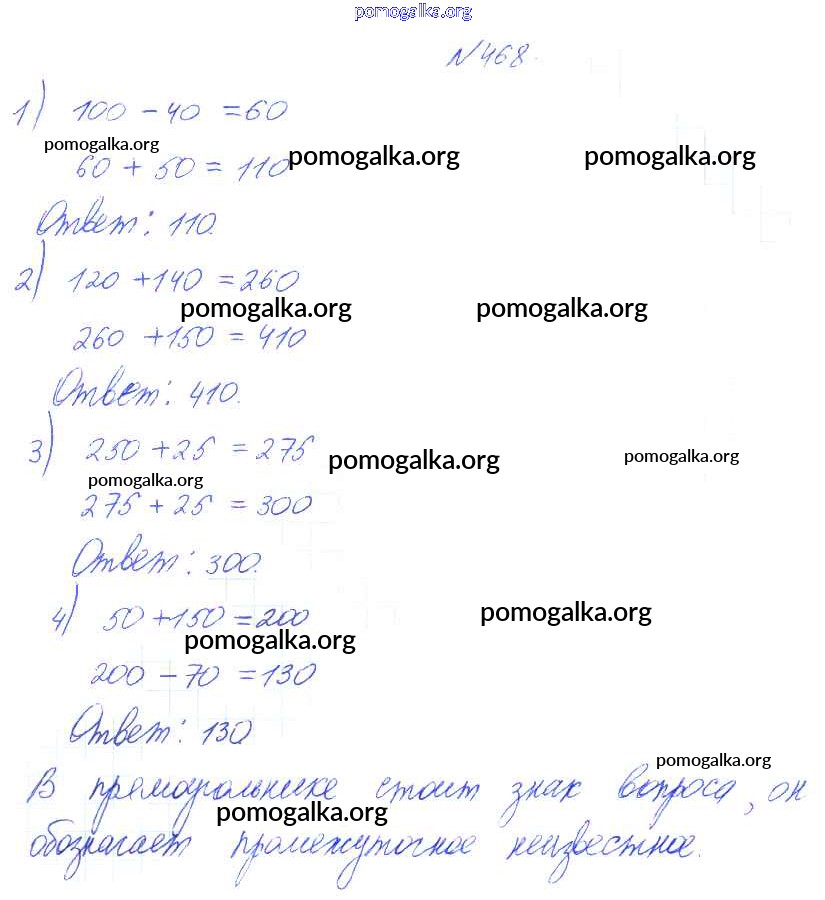 pomogalka.org
№468.
1) 100 - 40 = 60
pomogalka.org
60 + 50 = 110
pomogalka.org pomogalka.org
Ответ: 110.
2) 120 + 140 = 260
pomogalka.org pomogalka.org
260 + 150 = 410
Ответ: 410.
3) 250 + 25 = 275
pomogalka.org pomogalka.org
pomogalka.org
275 + 25 = 300
Ответ: 300.
4) 50 + 150 = 200
pomogalka.org
pomogalka.org
200 - 70 = 130
Ответ: 130
pomogalka.org
В прямоугольнике стоит знак вопроса, он
pomogalka.org
обозначает промежуточное неизвестное.